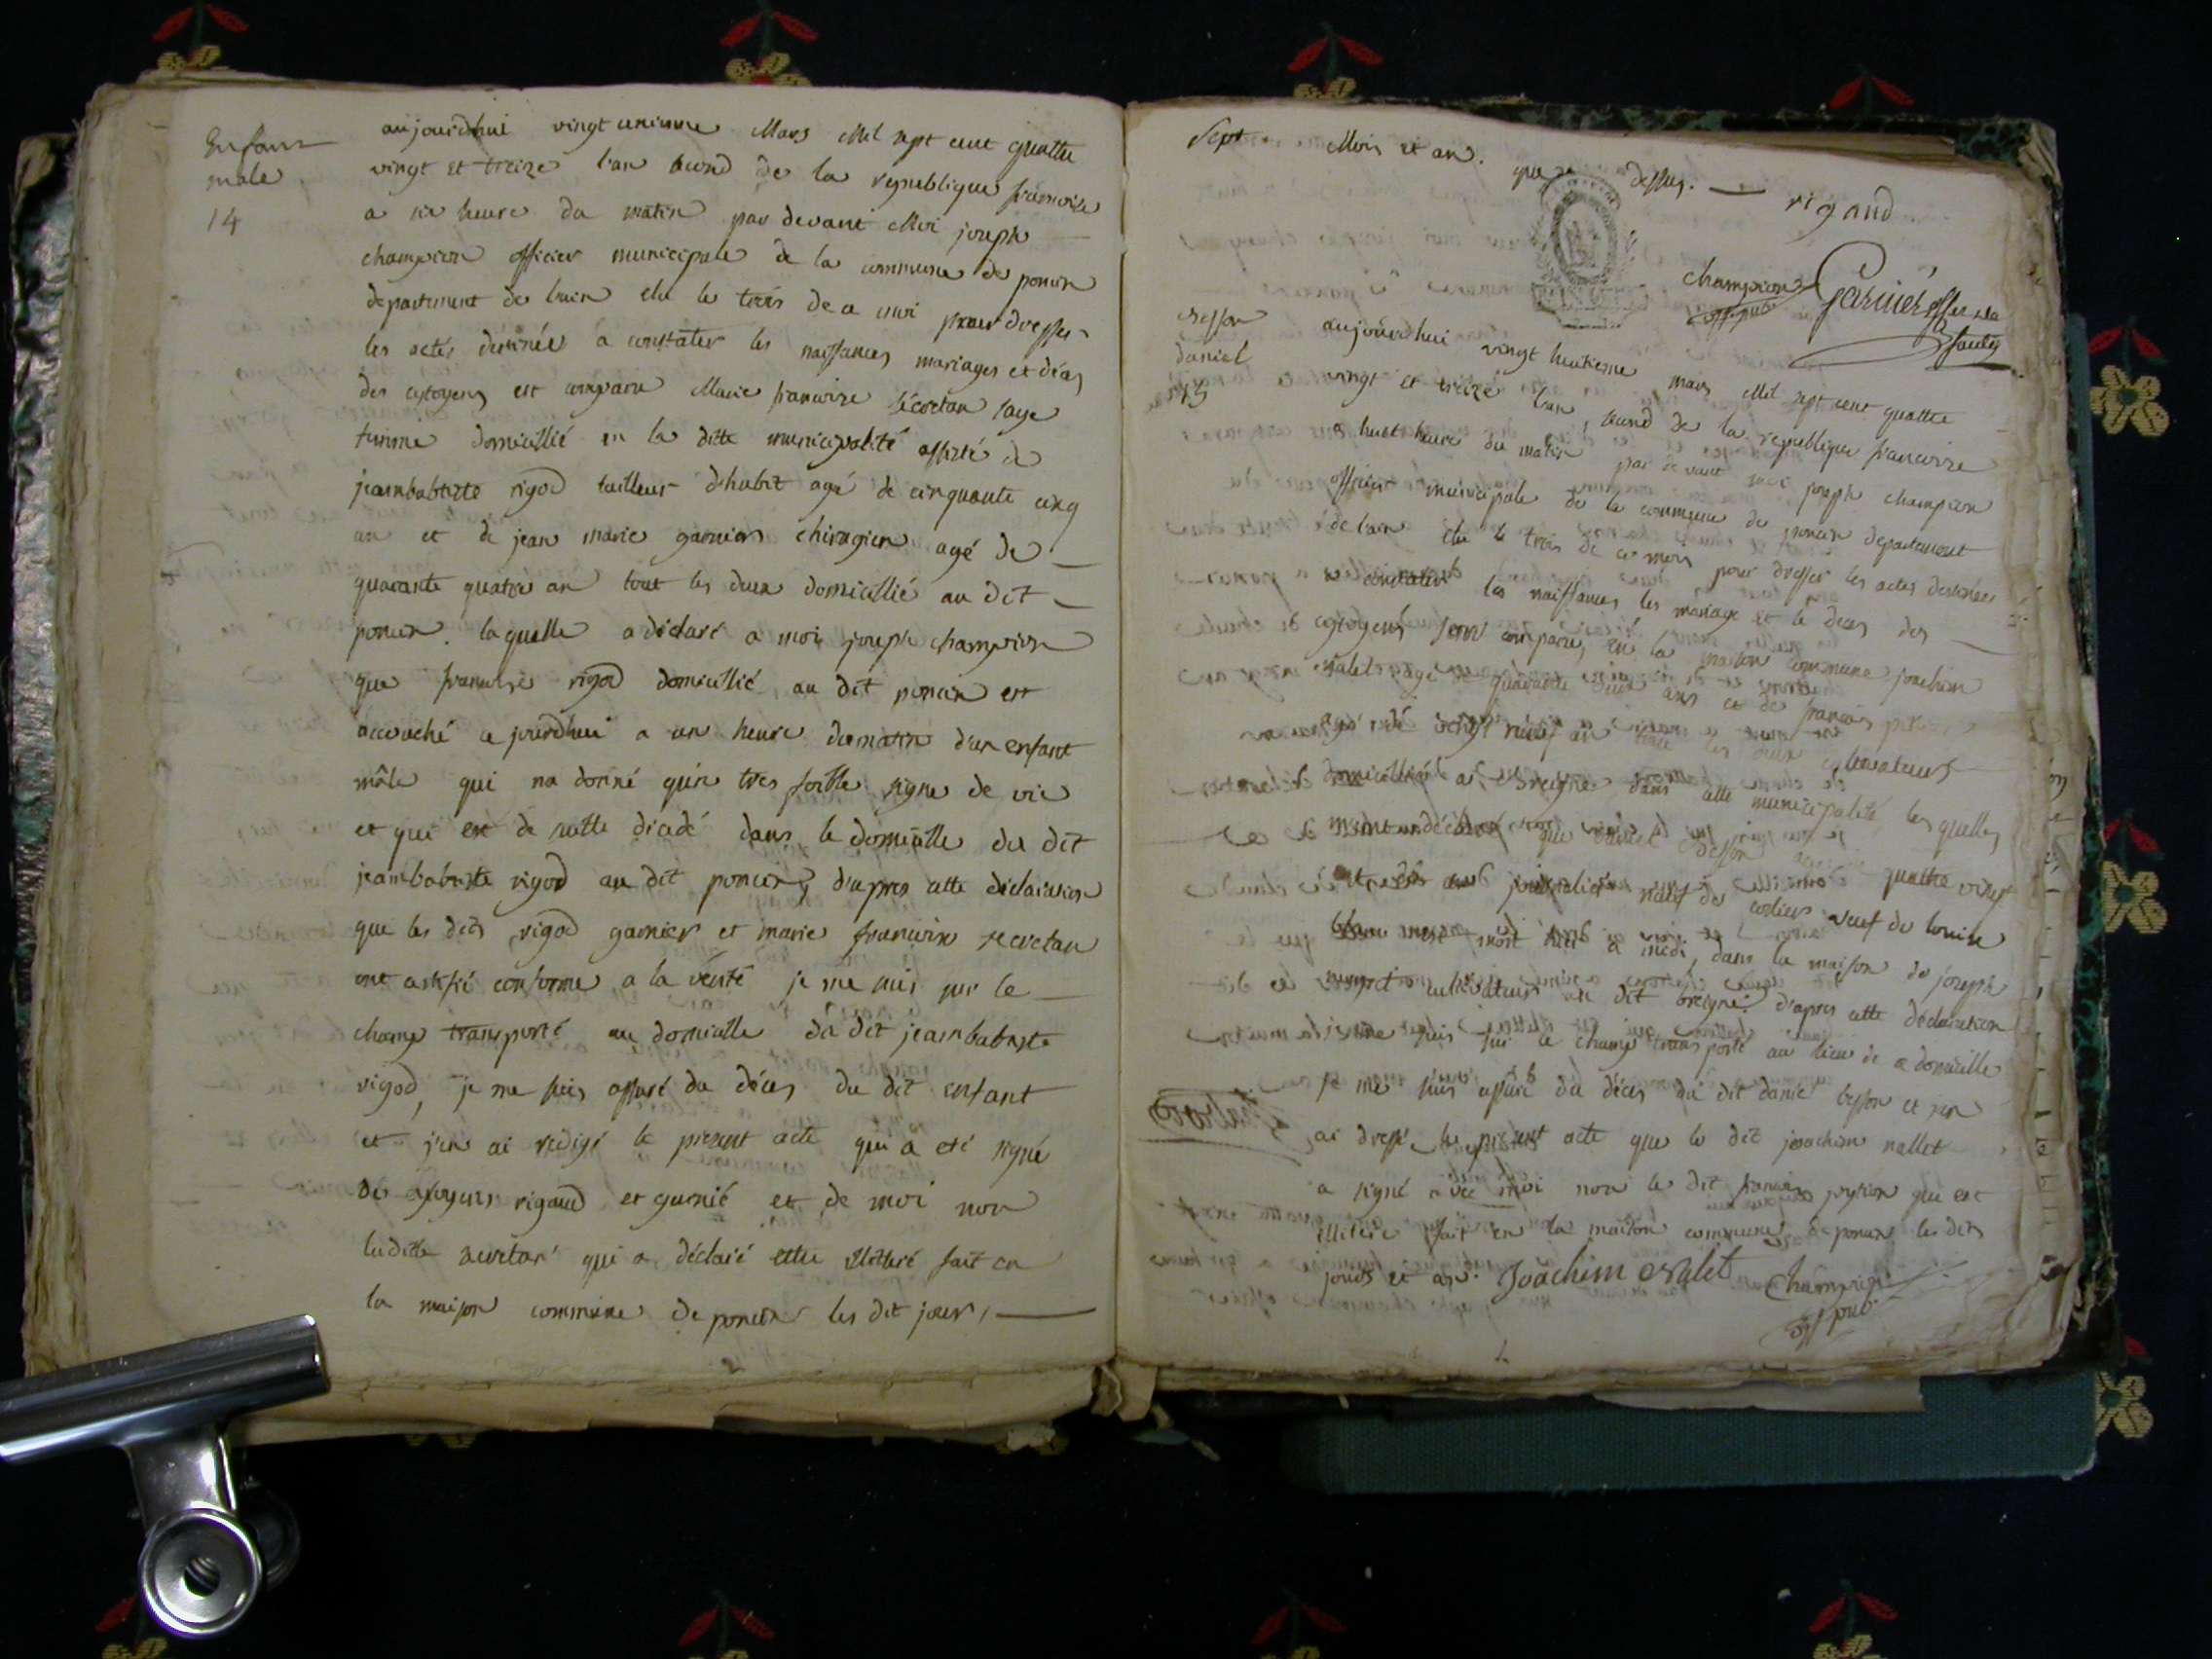 Enfant
male
14
aujourdhui vingt unieme Mars Mil sept cent quattre
vingt et treize l'an second de la republique francoise
a six heure du matin par devant Moi joseph
champion officier municipale de la commune de poncin
departement de lain elu le trois de ce moi pour dresser
les actes destinée a constater les naissances mariages et décas
des cytoyens est comparu Marie francoise secretan sage
femme domicillié en la ditte municipalité assisté de
jeanbabtiste rigod tailleur dhabit agé de cinquante cinq
an et de jean marie garnier chirugien agé de
quarante quatre an tout les deux domicillié au dit
poncin. laquelle a déclaré a moi joseph champion
que francoise rigod domicillié au dit poncin est
accouché ce jourdhui a un heure du matin d'un enfant
mâle qui na donné qu'un tres foible signe de vie
et qui est de suitte dicédé dans le domicille du dit
jeanbabtiste rigod au dit poncin, d'apres cette déclaration
que les dits rigod garnier et marie francoise secretan
ont conforme a la vérité je me suis sur le
champ transporté au domicille du dit jeanbabtiste
rigod, je me suis assuré du déces du dit enfant
et j'en ai rédigé le present acte qui a eté signé
des cytoyens rigaud et garnié et de moi non
laditte secretan qui a déclaré ettre illittéré fait en
la maison commune de poncin les dit jour,
Sept Mois et an.
que dessus. rigaud
champion
off pub
Garnier
besson
daniel
15
aujourdhui vingt huitieme mars Mil sept cent quattre
vingt et treize l'an second de la republique francoise
a huit heure du matin par devant moi joseph champion
officier municipale de la commune de poncin departement
de lain elu le trois de ce mois pour dresser les actes destinées
a constater les naissances les mariage et le déces des
cytoyens sont comparus en la maison commune joachim
nalet agé de quarante deux ans et de francois
agé de vingt neuf an tout les deux cultivateurs
domicillié a breigne dans cette municipalité les quelles
m'ont déclaré que daniel besson
agé de quattre vingt
an journalier natif de veuf de louise
est mort hier a midi, dans la maison de joseph
cultivateur au dit breigne. d'apres cette déclaration
je me suis sur le champ transporté au lieu de ce domicille
je me suis assuré du déces du dit daniel besson et jen
ai dressé le present acte que le dit joachim nallet
a signé avec moi non le dit francois que est
illitéré fait en la maison commune de poncin les dits
jours et an. Joachim Nalet Champion
off pub